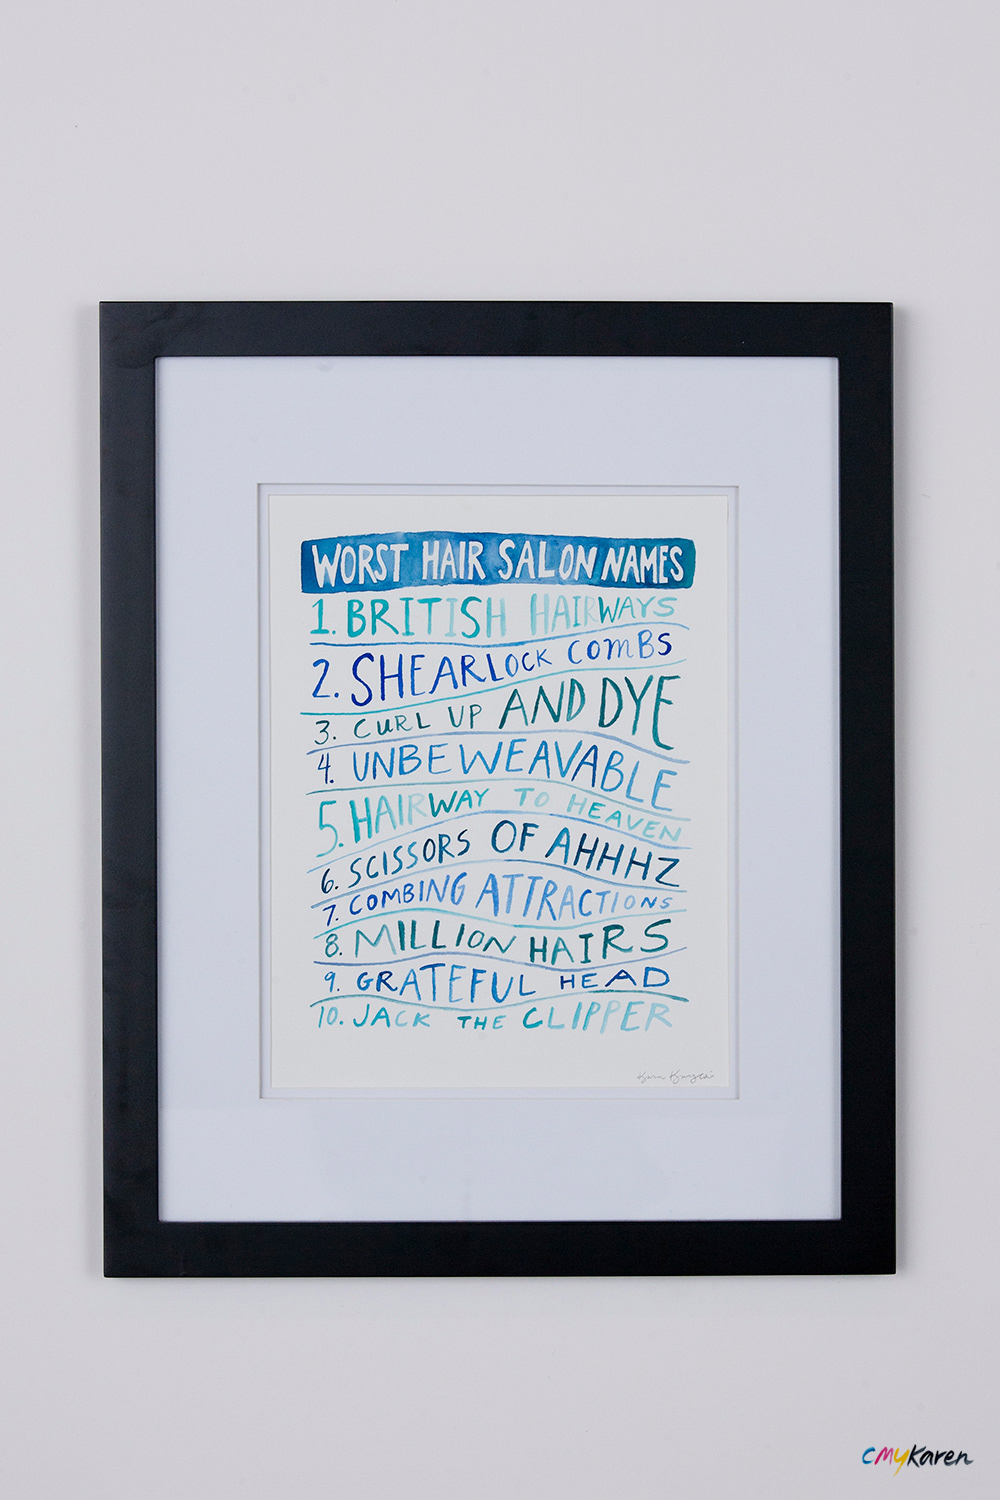 WORST HAIR SALON NAMES
1. BRITISH HAIRWAYS
2. SHEARLOCK COMBS
3. CURL UP AND DYE
4. UNBEWEAVABLE
5. HAIRWAY TO HEAVEN
6. SCISSORS OF AHHHZ
7. COMBING ATTRACTIONS
8. MILLION HAIRS
9. GRATEFUL HEAD
10. JACK THE CLIPPER
CMYKaren